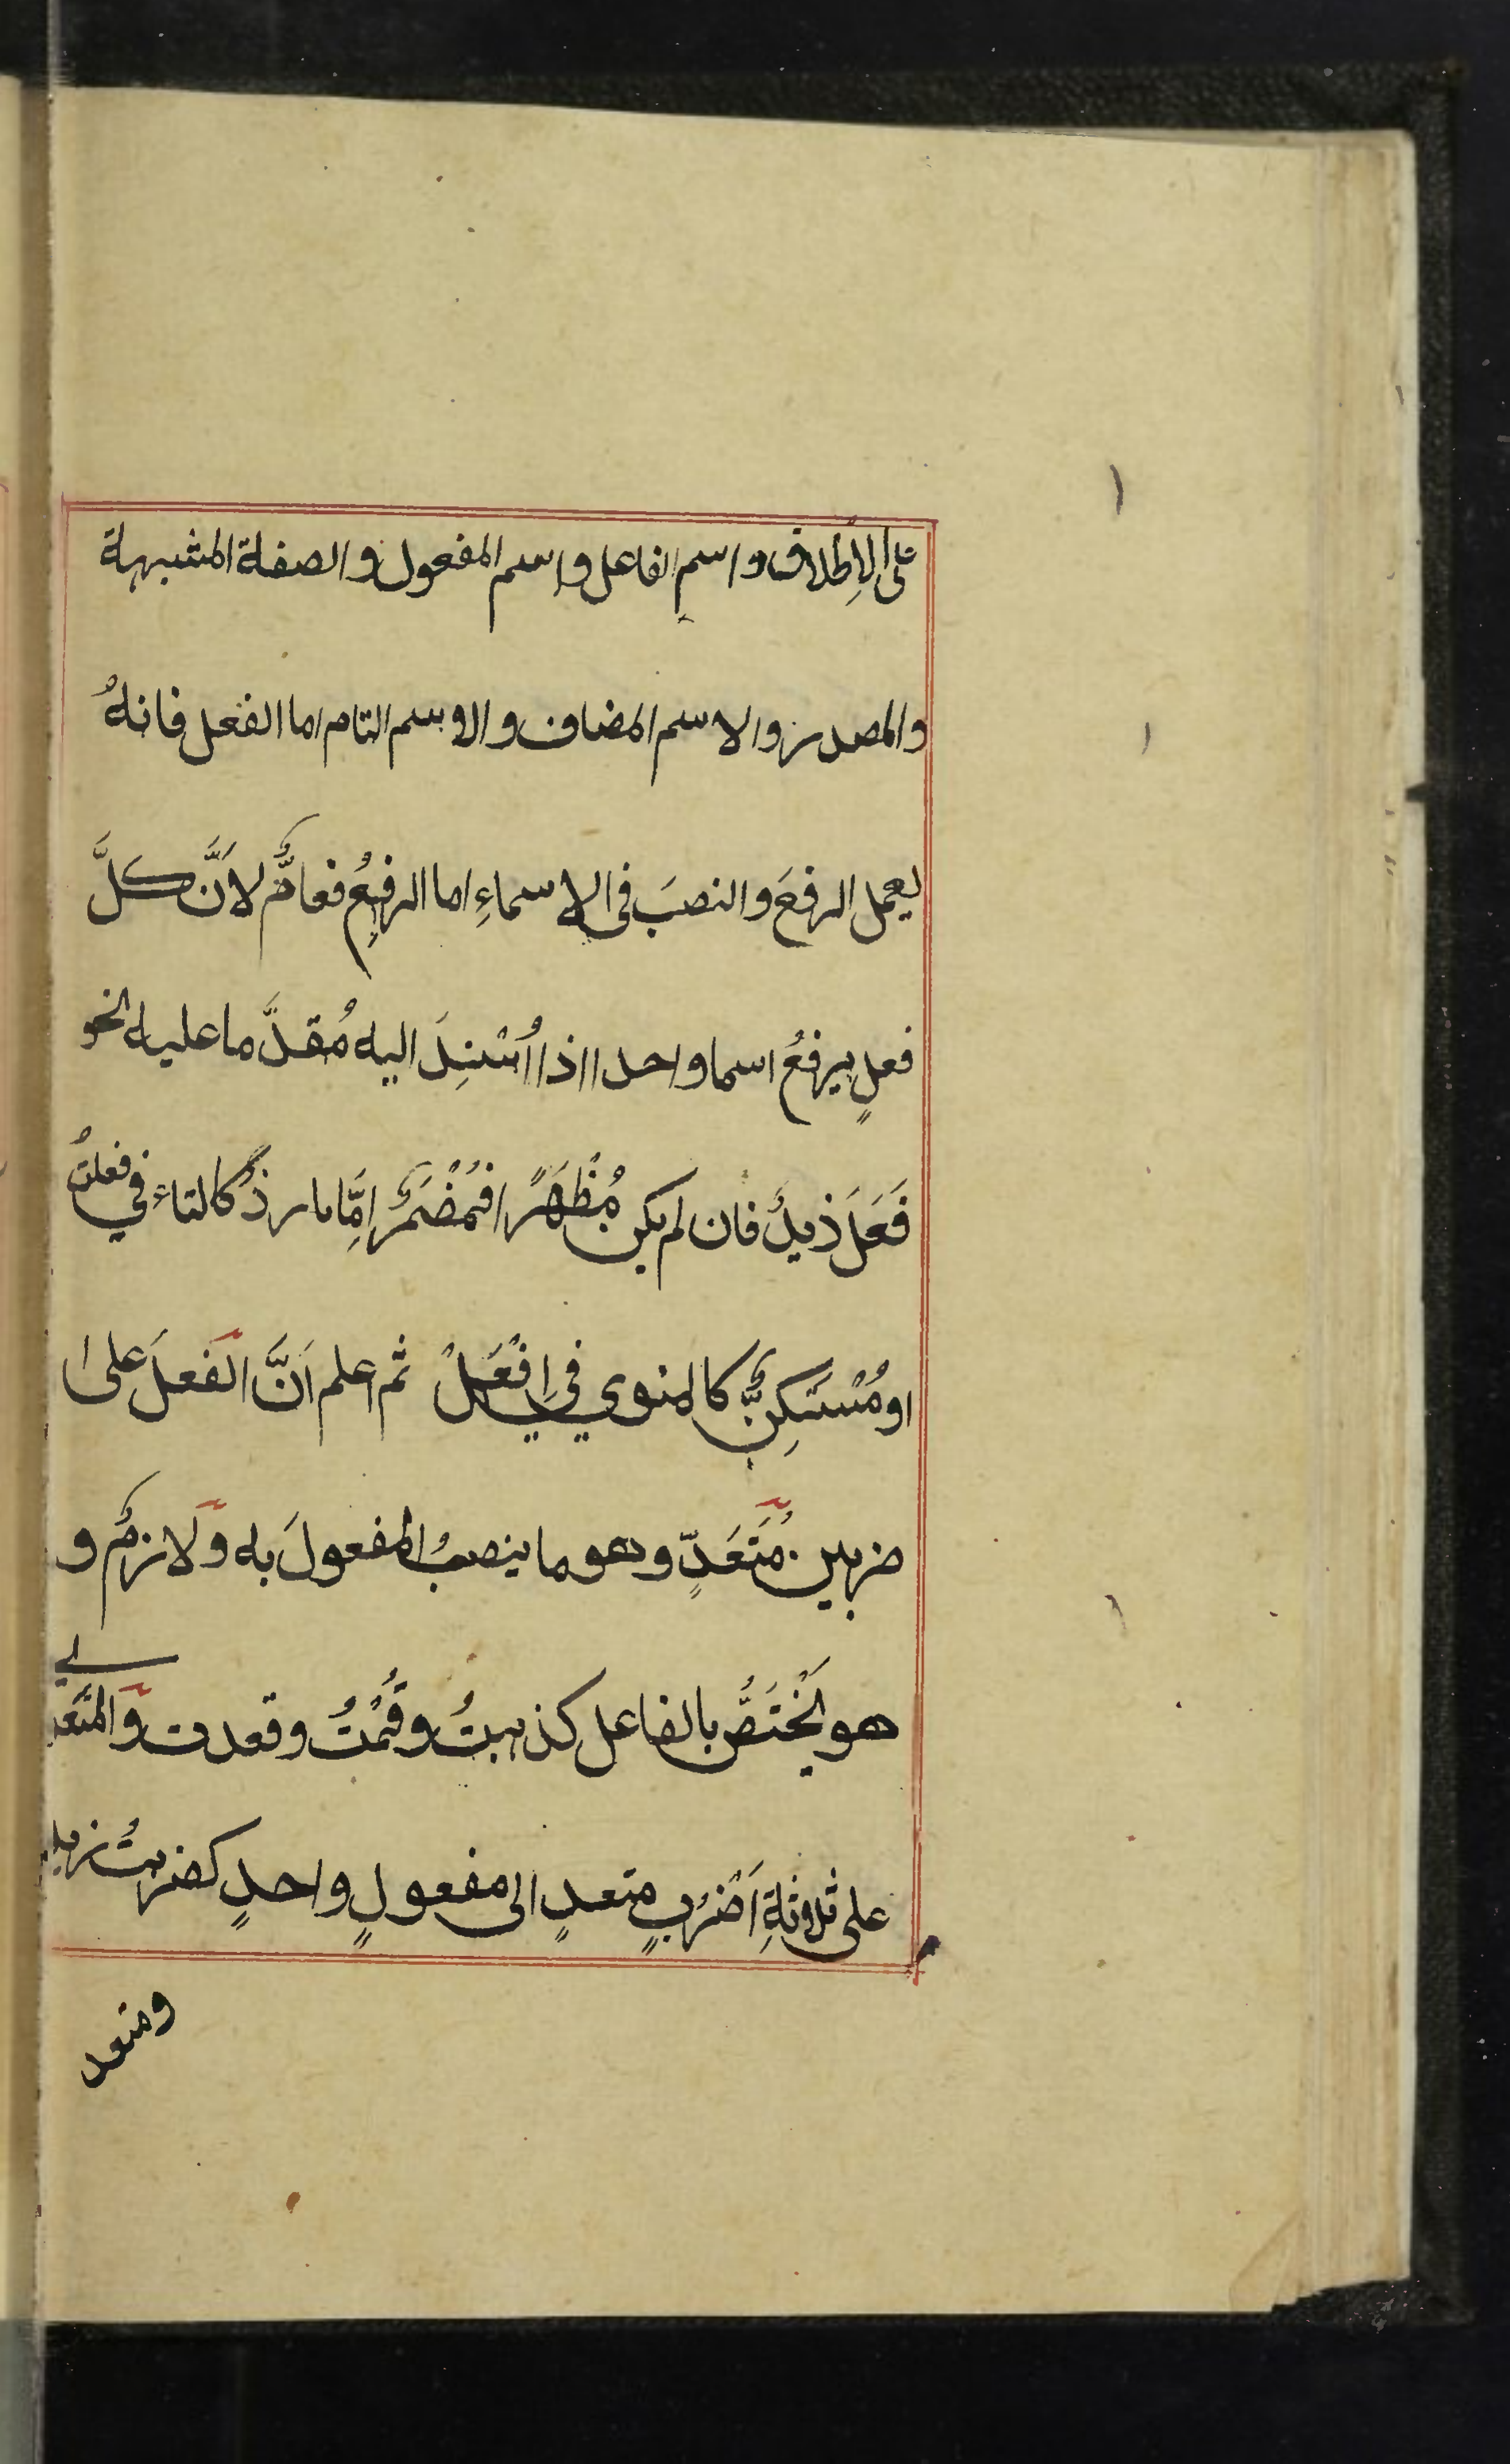 على الاِطلاق واسمِ الفاعل واسم المفعول والصفة المشبهة
والمصدر والاسم المضاف والاسم التام اما الفعل فانهُ
يعمل الرفعَ والنصبَ فى الاسماءِ اما الرفعُ فعامٌّ لاَنَّ كلَّ
فعلٍ يرفعُ اسما واحدا اذا اُسْنِدَ اليه مُقدَّما عليه نحو
فَعَلَ زيدٌ فان لم يكن مُظْهَرًا فمُضْمَرٌ اِمَّا بارزٌ كالتاء في فعلتُ
او مُسْتَكِنٌّ كالمنوي في اِفْعَلْ ثم اعلم اَنَّ الفعلَ على
ضربين مُتَعَدٍّ وهو ما ينصبُ المفعولَ به ولازمٌ و
هو يَخْتَصُّ بالفاعل كذهبتُ وقُمْتُ وقعدت والمتعدي
على ثلاثةِ اَضْرُبٍ متعدٍ الى مفعولٍ واحدٍ كضربتُ زيدا
ومتعد